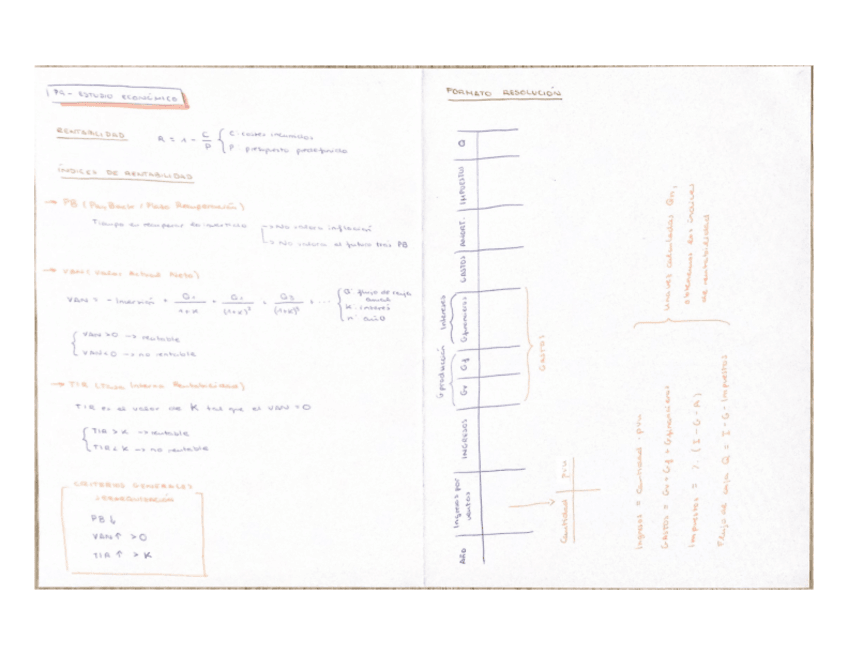 P4 - ESTUDIO ECONÓMICO
RENTABILIDAD R = 1 - C/P { C: costes
P: presupuesto predefinido
ÍNDICES DE RENTABILIDAD
→ PB (PayBack / Plazo Recuperación)
Tiempo en recuperar la inversión → No valora inflación
→ No valora el futuro tras PB
→ VAN (Valor Actual Neto)
VAN = - Inversión + Q1/(1+K) + Q2/(1+K)² + Q3/(1+K)³ + ... { Q: flujo de caja anual
K: interés
n: año
{ VAN > 0 → rentable
VAN < 0 → no rentable
→ TIR (Tasa Interna Rentabilidad)
TIR es el valor de K tal que el VAN = 0
{ TIR > K → rentable
TIR < K → no rentable
CRITERIOS GENERALES
PB ↓
VAN ↑ > 0
TIR ↑ > K
FORMATO RESOLUCIÓN
AÑO
Ingresos por ventas
INGRESOS
Gv
Gf
Gfinancieros
GASTOS
AMORT.
IMPUESTOS
Q
Gproducción
Intereses
GASTOS
Cantidad
pvu
Ingresos = Cantidad · pvu
GASTOS = Gv + Gf + Gfinancieros
Impuestos = (I - G - A)
Flujo de caja Q = I - G - Impuestos
Una vez calculadas Qn,
obtenemos los índices
de rentabilidad